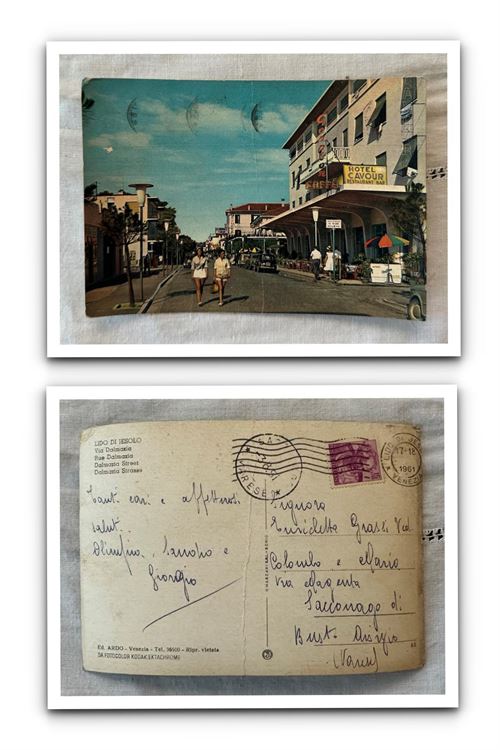 HOTEL
CAVOUR
RESTAURANT BAR
LIDO DI JESOLO
Via Dalmazia
Rue Dalmazia
Dalmazia Street
Dalmazia Strasse
Tanti cari e affettuosi
saluti
Olimpia, Sandro e
Giorgio
Ed. ARDO - Venezia - Tel. - Ripr. vietata
DA FOTOCOLOR KODAK EKTACHROME
VARESE
LIDO DI JE
17-18
1961
VENEZIA
Signora
Enrichetta Grassi Ved
Colombo e Mario
Via Magenta
Sacconago di
Busto Arsizio
(Varese)